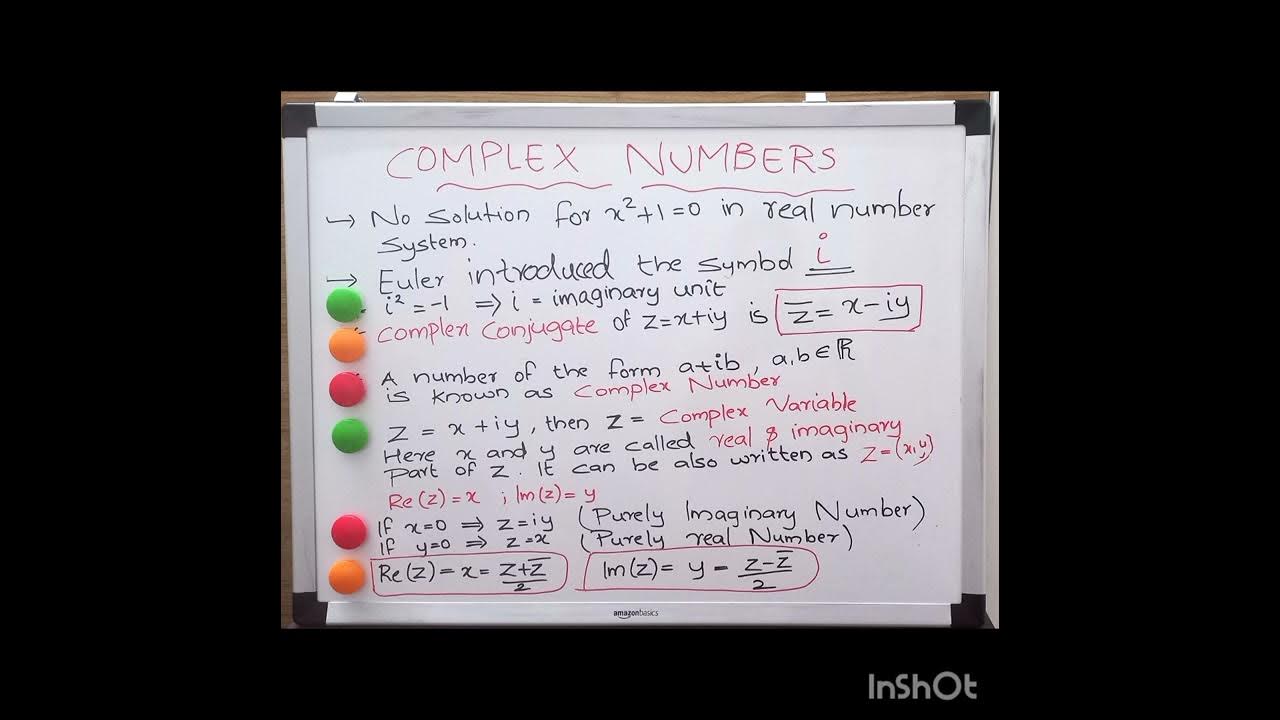 COMPLEX NUMBERS
→ No solution for x²+1=0 in real number
system.
→ Euler introduced the symbol i
i² = -1 ⇒ i = imaginary unit
Complex Conjugate of z=x+iy is z̅ = x-iy
A number of the form a+ib, a,b∈ℝ
is known as Complex Number
Z = x+iy, then Z = Complex Variable
Here x and y are called real & imaginary
part of Z. It can be also written as Z=(x,y)
Re(z)=x ; Im(z)=y
If x=0 ⇒ z=iy (Purely Imaginary Number)
If y=0 ⇒ z=x (Purely real Number)
Re(z)=x= z+z̅/2 Im(z)= y = z-z̅/2
amazonbasics
InShOt